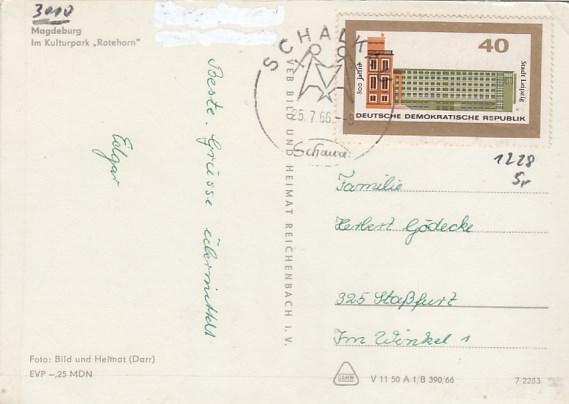 3010
Magdeburg
Im Kulturpark „Rotehorn"
Beste Grüsse übermittelt
Edgar
Foto: Bild und Heimat (Darr)
EVP –,25 MDN
VEB BILD UND HEIMAT REICHENBACH I. V.
25.7.66.
40
800 Jahre
Stadt Leipzig
DEUTSCHE DEMOKRATISCHE REPUBLIK
1228
Familie
Herbert Gödecke
325 Staßfurt
Im Winkel 1
V 11 50 A 1/B 390/66
7 2283